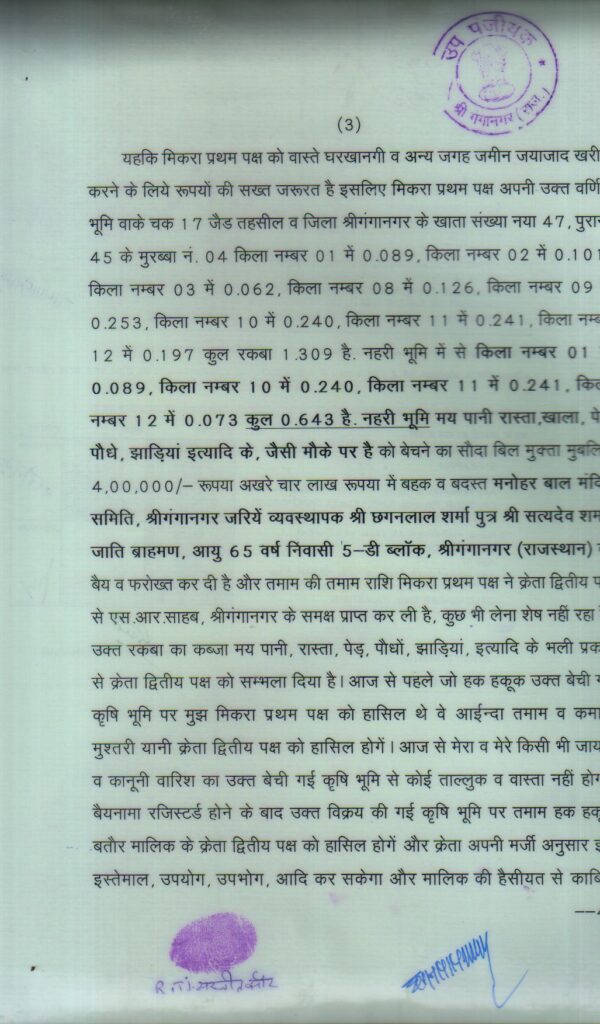 उप पंजीयक *
श्री गंगानगर (राज.)
(3)
यहकि मिकरा प्रथम पक्ष को वास्ते घरखानगी व अन्य जगह जमीन जयाजाद खरी
करने के लिये रूपयों की सख्त जरूरत है इसलिए मिकरा प्रथम पक्ष अपनी उक्त वर्णि
भूमि वाके चक 17 जैड तहसील व जिला श्रीगंगानगर के खाता संख्या नया 47, पुरा
45 के मुरब्बा नं. 04 किला नम्बर 01 में 0.089, किला नम्बर 02 में 0.101
किला नम्बर 03 में 0.062, किला नम्बर 08 में 0.126, किला नम्बर 09
0.253, किला नम्बर 10 में 0.240, किला नम्बर 11 में 0.241, किला नम्ब
12 में 0.197 कुल रकबा 1.309 है. नहरी भूमि में से किला नम्बर 01
0.089, किला नम्बर 10 में 0.240, किला नम्बर 11 में 0.241, कि
नम्बर 12 में 0.073 कुल 0.643 है. नहरी भूमि मय पानी रास्ता,खाला, पे
पौधे, झाड़ियां इत्यादि के, जैसी मौके पर है को बेचने का सौदा बिल मुक्ता मुबलि
4,00,000/– रूपया अखरे चार लाख रूपया में बहक व बदस्त मनोहर बाल मंदि
समिति, श्रीगंगानगर जरियें व्यवस्थापक श्री छगनलाल शर्मा पुत्र श्री सत्यदेव शर्म
जाति ब्राहमण, आयु 65 वर्ष निवासी 5–डी ब्लॉक, श्रीगंगानगर (राजस्थान)
बैय व फरोख्त कर दी है और तमाम की तमाम राशि मिकरा प्रथम पक्ष ने क्रेता द्वितीय प
से एस.आर.साहब, श्रीगंगानगर के समक्ष प्राप्त कर ली है, कुछ भी लेना शेष नहीं रहा
उक्त रकबा का कब्जा मय पानी, रास्ता, पेड़, पौधों, झाड़ियां, इत्यादि के भली प्रका
से क्रेता द्वितीय पक्ष को सम्भला दिया है। आज से पहले जो हक हकूक उक्त बेची ग
कृषि भूमि पर मुझ मिकरा प्रथम पक्ष को हासिल थे वे आईन्दा तमाम व कमा
मुश्तरी यानी क्रेता द्वितीय पक्ष को हासिल होगें। आज से मेरा व मेरे किसी भी जाय
व कानूनी वारिश का उक्त बेची गई कृषि भूमि से कोई ताल्लुक व वास्ता नहीं होग
बैयनामा रजिस्टर्ड होने के बाद उक्त विक्रय की गई कृषि भूमि पर तमाम हक हकू
बतौर मालिक के क्रेता द्वितीय पक्ष को हासिल होगें और क्रेता अपनी मर्जी अनुसार इ
इस्तेमाल, उपयोग, उपभोग, आदि कर सकेगा और मालिक की हैसीयत से काबि